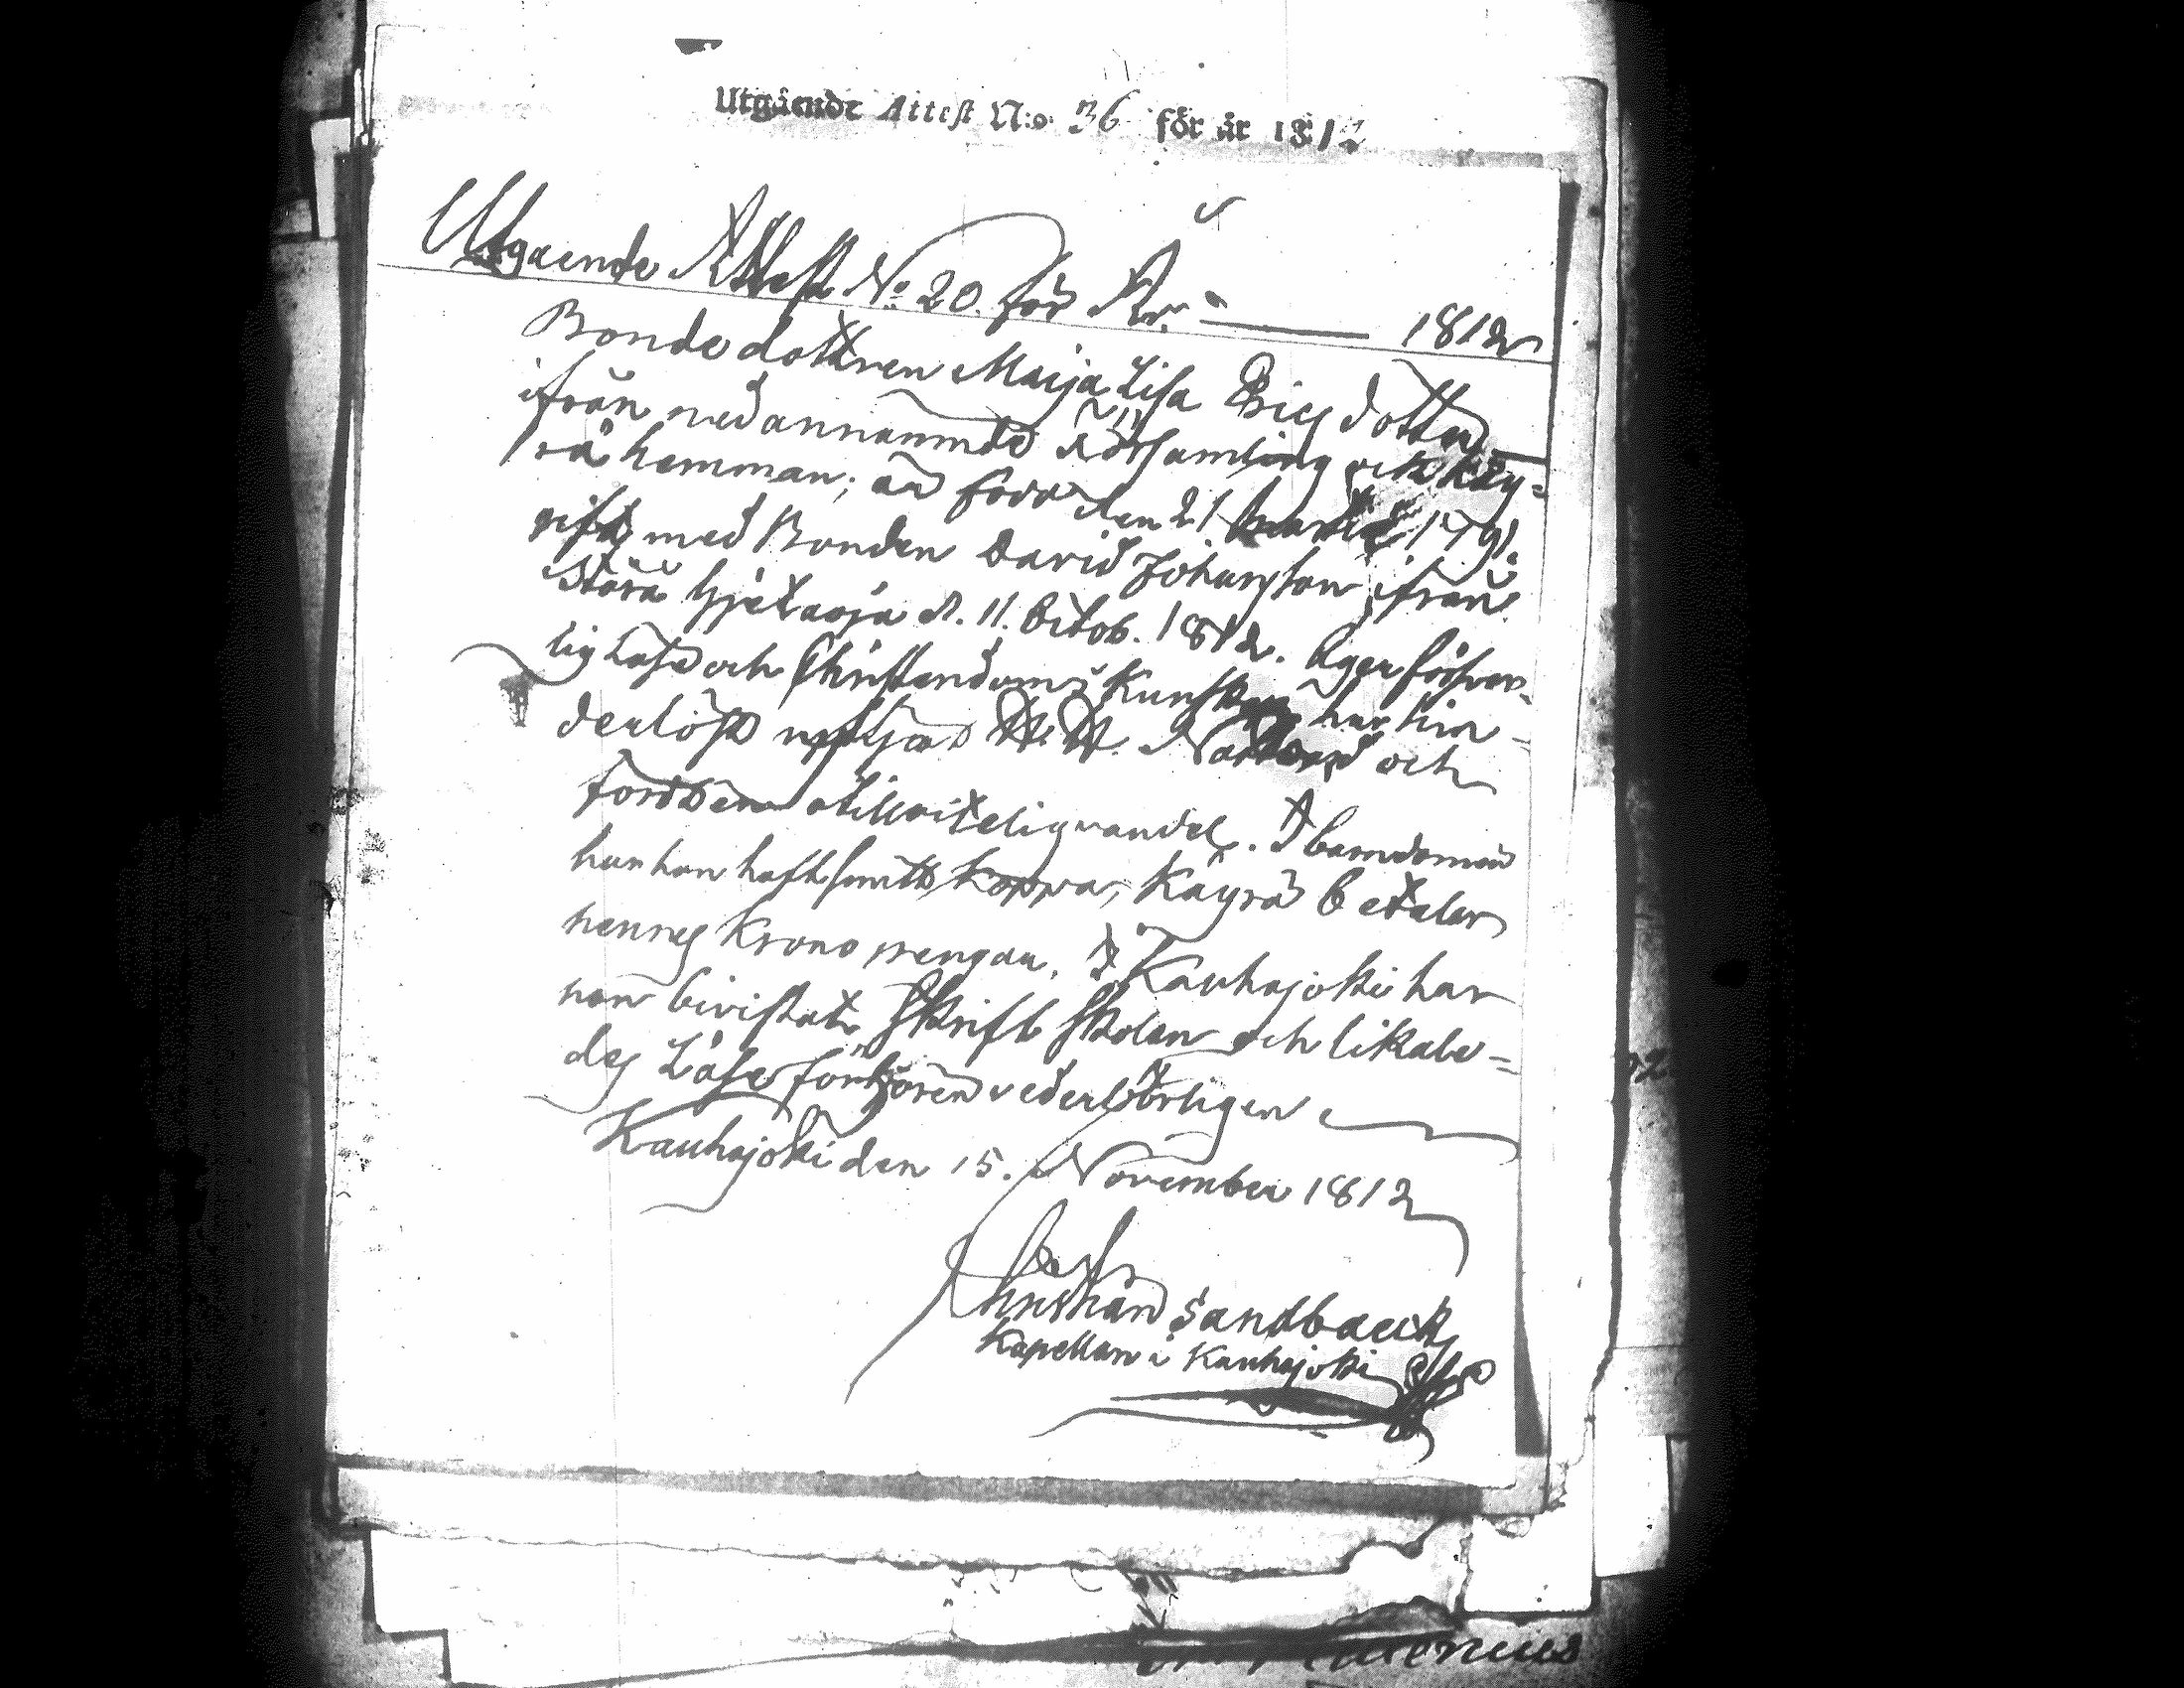 Utgående Attest N:o 36 för år 1812
Utgaende Attest No 20. för År 1812
Bondedottren Maija Lisa Ericsdotter
ifrån nedannämnde Församling och Käy=
rä hemman; är född den 21 Martii 1791.
gift med Bonden David Johansson ifrån
Storå Hjetaoja d. 11. Octob. 1812. Äger försvar=
lig Läse och Christendoms Kunskap har hin=
derlöst nyttjat H. H. Nattvard och
fördt en otillvitelig vandel. I barndomen
har hon haft smitt koppor, Käyrä betaler
hennes Krono pengar. I Kauhajoki har
hon bivistat Skrift Skolan och likale=
des Läseförhören vederbörligen
Kauhajoki den 15. November 1812
Christian Sandbäck
Kapellan i Kauhajoki